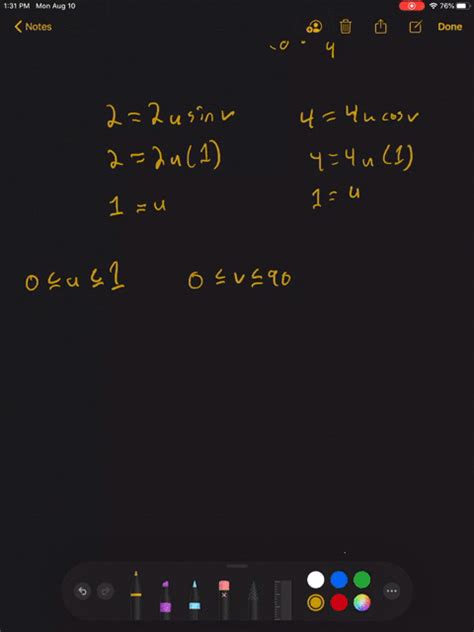 1:31 PM Mon Aug 10 76%
Notes Done
2 = 2u sin v 4 = 4u cos v
2 = 2u(1) 4 = 4u(1)
1 = u 1 = u
0 ≤ u ≤ 1 0 ≤ v ≤ 90